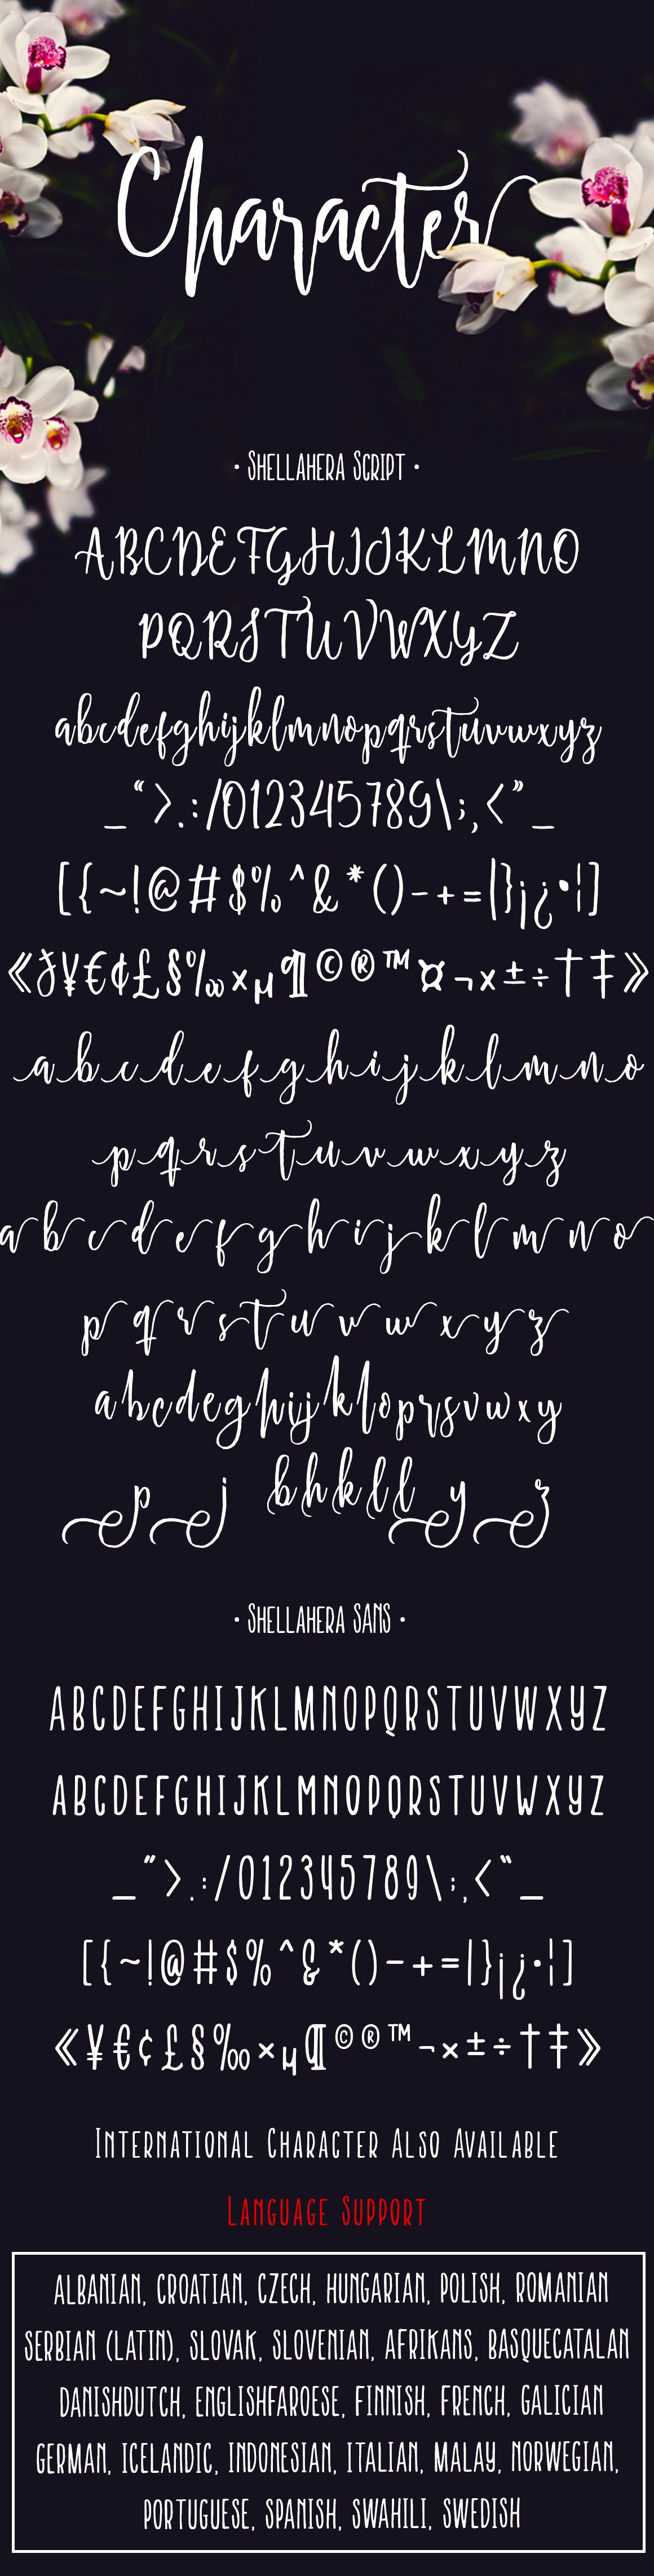 Character
• Shellahera Script •
ABCDEFGHIJKLMNO
PQRSTUVWXYZ
abcdefghijklmnopqrstuvwxyz
_“>.:/012345789\;,<”_
[{~!@#$%^&*()-+=|}¡¿•¦]
«
¥€¢£§‰×µ¶©®™¤¬×±÷†‡»
abcdefghijklmno
pqrstuvwxyz
abcdefghijklmno
pqrstuvwxyz
abcdeghijkloprsvwxy
pj bhkll yz
• Shellahera Sans •
ABCDEFGHIJKLMNOPQRSTUVWXYZ
ABCDEFGHIJKLMNOPQRSTUVWXYZ
_”>.:/012345789\;,<“_
[{~!@#$%^&*()-+=|}¡¿•¦]
«¥€¢£§‰×µ¶©®™¬×±÷†‡»
International Character Also Available
Language Support
ALBANIAN, CROATIAN, CZECH, HUNGARIAN, POLISH, ROMANIAN
SERBIAN (LATIN), SLOVAK, SLOVENIAN, AFRIKANS, BASQUECATALAN
DANISHDUTCH, ENGLISHFAROESE, FINNISH, FRENCH, GALICIAN
GERMAN, ICELANDIC, INDONESIAN, ITALIAN, MALAY, NORWEGIAN,
PORTUGUESE, SPANISH, SWAHILI, SWEDISH